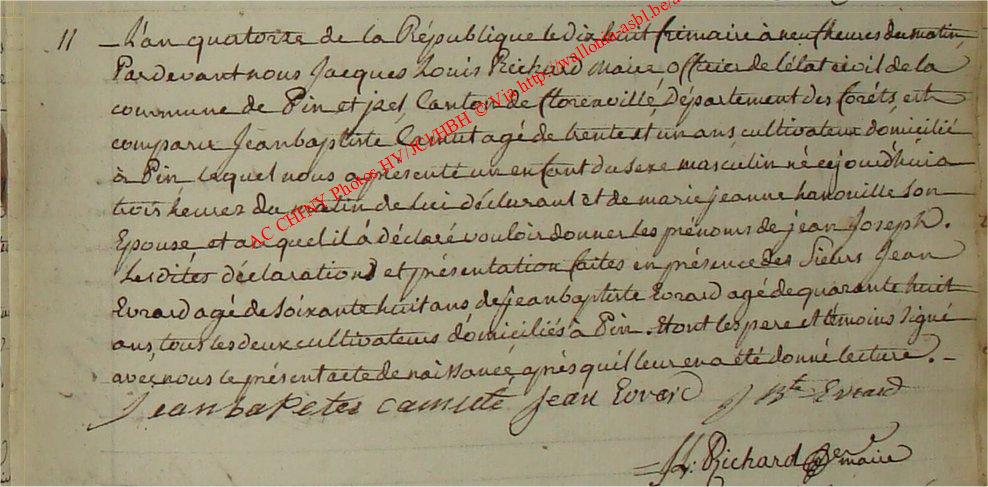 11 L'an quatorze de la République le dix huit frimaire à neuf heures du matin,
Pardevant nous Jacques Louis Richard maire officier de l'état civil de la
commune de Pin et jzel Canton de florenville, Département des forêts, est
comparu Jeanbaptiste Camut agé de trente et un ans cultivateur domicilié
à Pin lequel nous a présenté un enfant du sexe masculin né cejourd'hui à
trois heures du matin de lui déclarant et de marie jeanne hanouille son
Epouse et auquel il à déclaré vouloir donner les prénoms de jean Joseph.
Lesdites déclarations et présentation faites en présence des Sieurs Jean
Evrard agé de soixante huit ans de jeanbaptiste Evrard agé de quarante huit
ans, tous les deux cultivateurs domiciliés à Pin. Et ont les pere et témoins signé
avec nous le présent acte de naissance, après qu'il leur en a été donné lecture. –
Jean Evrard J Bte Evrard
JL: Richard maire
AC CHINY Photos HV/RV/HBH © Via http://wallonia-asbl.be/